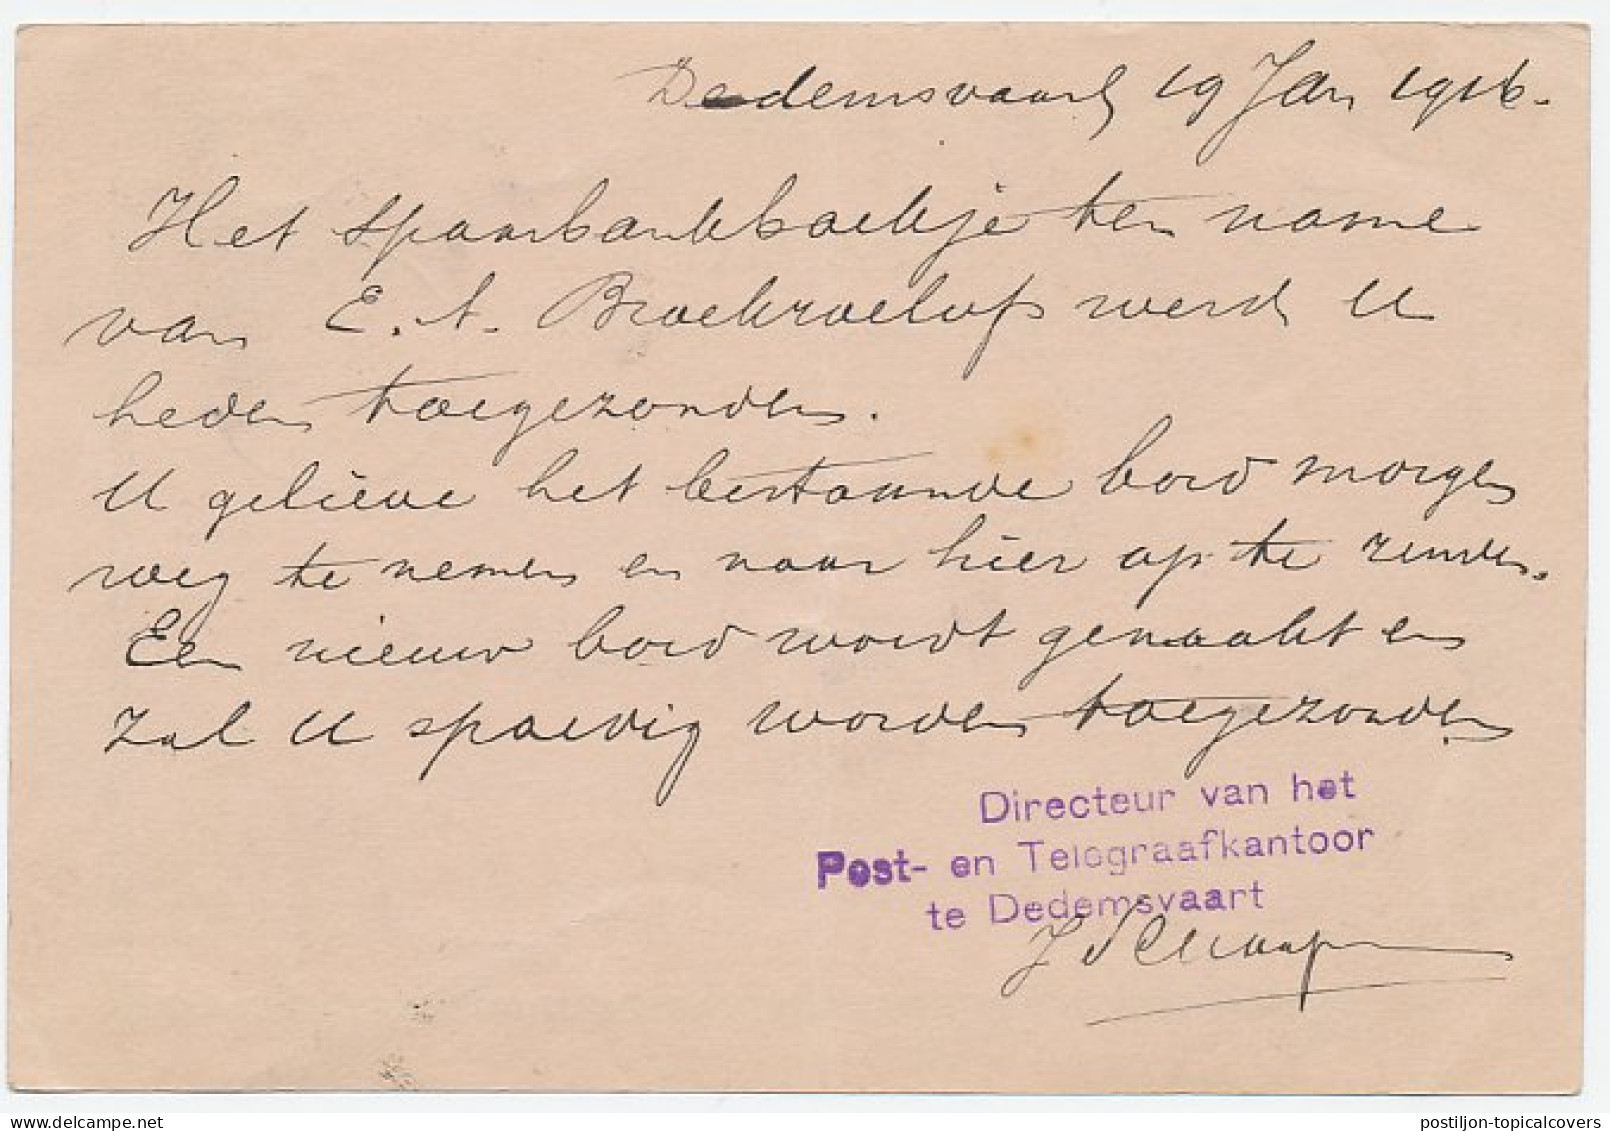 Dedemsvaart 19 Jan 1916.
Het spaarbankboekje ten name
van E. A. Broekroelofs werd U
heden toegezonden.
U gelieve het bestaande bord morgen
weg te nemen en naar hier op te zenden.
Een nieuw bord wordt gemaakt en
zal U spoedig worden toegezonden
Directeur van het
Post- en Telegraafkantoor
te Dedemsvaart
J
postiljon-topicalcovers